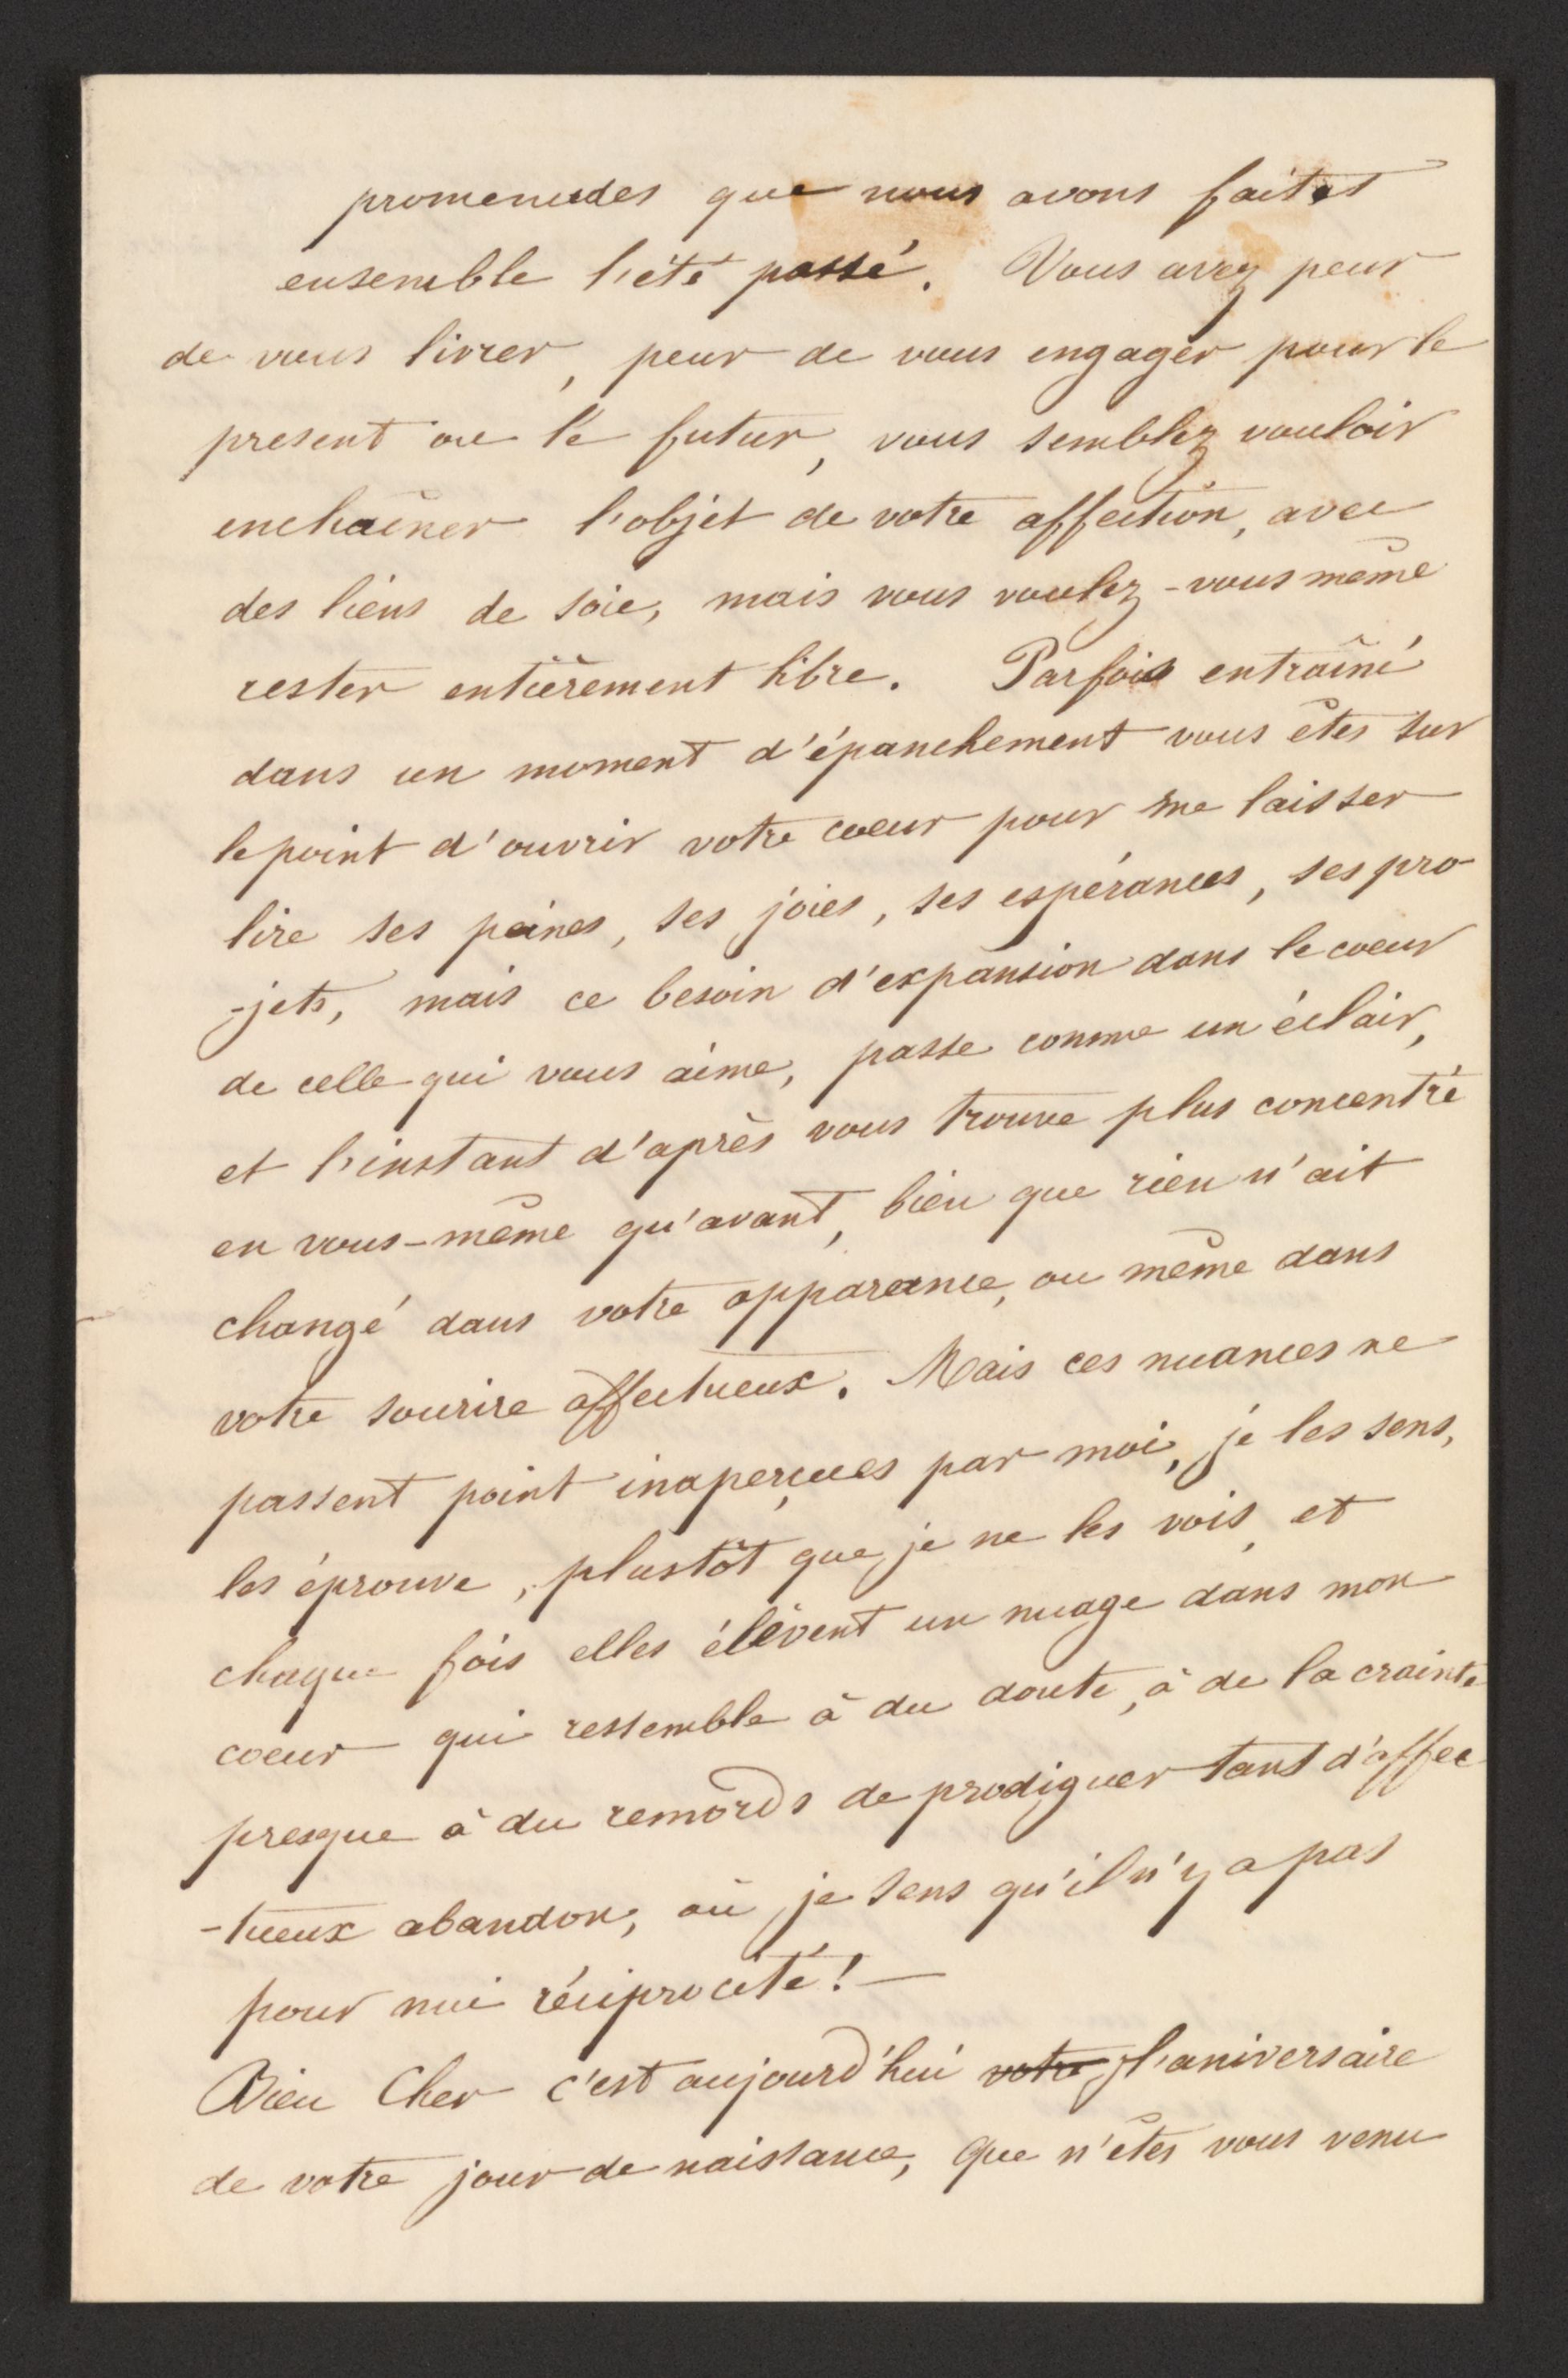 promenades que nous avons faites
ensemble l'été passé. Vous avez peur
de vous livrer, peur de vous engager pour le
present ou le futur, vous semblez vouloir
enchaîner l'objet de votre affection, avec
des liens de soie, mais vous voulez-vous même
rester entièrement libre. Parfois entraîné
dans un moment d'épanchement vous êtes sur
le point d'ouvrir votre coeur pour me laisser
lire ses peines, ses joies, ses espérances, ses pro-
-jets, mais ce besoin d'expansion dans le coeur
de celle qui vous aime, passe comme un éclair,
et l'instant d'après vous trouve plus concentré
en vous-même qu'avant, bien que rien n'ait
changé dans votre apparence, ou même dans
votre sourire affectueux. Mais ces nuances ne
passent point inaperçues par moi, je les sens,
les éprouve, plustôt que je ne les vois, et
chaque fois elles élèvent un nuage dans mon
coeur qui ressemble à du doute, à de la crainte
presque à du remords de prodiguer tant d'affec
-tueux abandon, où je sens qu'il n'y a pas
pour moi réciprocité! —
Bien Cher c'est aujourd'hui votre l'aniversaire
de votre jour de naissance, que n'êtes vous venu